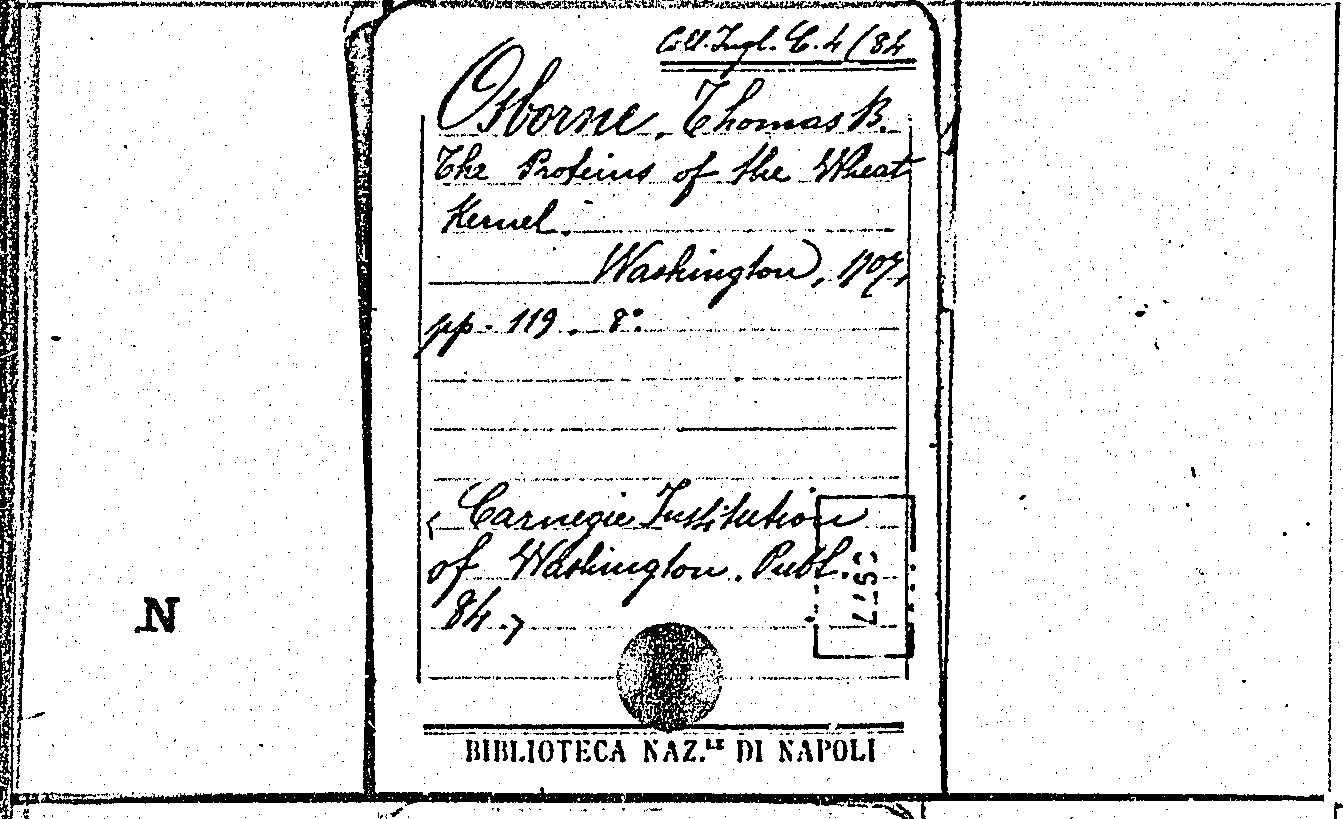 Coll. Ingl. C. 4 / 84
Osborne, Thomas B.
The Proteins of the Wheat
Kernel.
Washington, 1907,
pp. 119. 8°.
< Carnegie Institution
of Washington. Publ.
84. >
N
BIBLIOTECA NAZ.LE DI NAPOLI